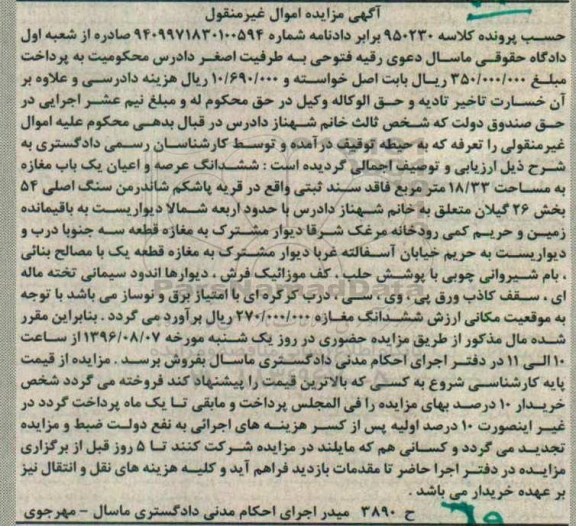 آگهی مزایده اموال غیرمنقول
حسب پرونده کلاسه ۹۵۰۲۳۰ برابر دادنامه شماره ۹۴۰۹۹۷۱۸۳۰۱۰۰۵۹۴ صادره از شعبه اول
دادگاه حقوقی ماسال دعوی رقیه فتوحی به طرفیت اصغر دادرس محکومیت به پرداخت
مبلغ ۳۵۰/۰۰۰/۰۰۰ ریال بابت اصل خواسته و ۱۰/۶۹۰/۰۰۰ ریال هزینه دادرسی و علاوه بر
آن خسارت تاخیر تادیه و حق الوکاله وکیل در حق محکوم له و مبلغ نیم عشر اجرایی در
حق صندوق دولت که شخص ثالث خانم شهناز دادرس در قبال بدهی محکوم علیه اموال
غیرمنقولی را تعرفه که به حیطه توقیف درآمده و توسط کارشناسان رسمی دادگستری به
شرح ذیل ارزیابی و توصیف اجمالی گردیده است : ششدانگ عرصه و اعیان یک باب مغازه
به مساحت ۱۸/۳۳ متر مربع فاقد سند ثبتی واقع در قریه پاشکم شاندرمن سنگ اصلی ۵۴
بخش ۲۶ گیلان متعلق به خانم شهناز دادرس با حدود اربعه شمالا دیواریست به باقیمانده
زمین و حریم کمی رودخانه مرغک شرقا دیوار مشترک به مغازه قطعه سه جنوبا درب و
دیواریست به حریم خیابان آسفالته غربا دیوار مشترک به مغازه قطعه یک با مصالح بنائی
، بام شیروانی چوبی با پوشش حلب ، کف موزائیک فرش ، دیوارها اندود سیمانی تخته ماله
ای ، سقف کاذب ورق پی ، وی ، سی ، درب کرکره ای با امتیاز برق و نوساز می باشد با توجه
به موقعیت مکانی ارزش ششدانگ مغازه ۲۷۰/۰۰۰/۰۰۰ ریال برآورد می گردد . بنابراین مقرر
شده مال مذکور از طریق مزایده حضوری در روز یک شنبه مورخه ۱۳۹۶/۰۸/۰۷ از ساعت
۱۰ الی ۱۱ در دفتر اجرای احکام مدنی دادگستری ماسال بفروش برسد . مزایده از قیمت
پایه کارشناسی شروع به کسی که بالاترین قیمت را پیشنهاد کند فروخته می گردد شخص
خریدار ۱۰ درصد بهای مزایده را فی المجلس پرداخت و مابقی تا یک ماه پرداخت گردد در
غیر اینصورت ۱۰ درصد اولیه پس از کسر هزینه های اجرائی به نفع دولت ضبط و مزایده
تجدید می گردد و کسانی هم که مایلند در مزایده شرکت کنند تا ۵ روز قبل از برگزاری
مزایده در دفتر اجرا حاضر تا مقدمات بازدید فراهم آید و کلیه هزینه های نقل و انتقال نیز
بر عهده خریدار می باشد .
ح ۳۸۹۰ میدر اجرای احکام مدنی دادگستری ماسال - مهرجوی